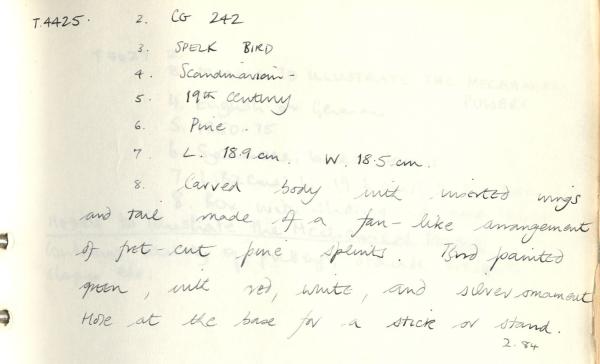 T.4425. 2. CG 242
3. SPELK BIRD
4. Scandinavian -
5. 19th century
6. Pine.
7. L. 18.9 cm. W. 18.5 cm.
8. Carved body with inserted wings
and tail made of a fan-like arrangement
of fret-cut pine splints. Bird painted
green, with red, white, and silver ornament
Hole at the base for a stick or stand.
2.84